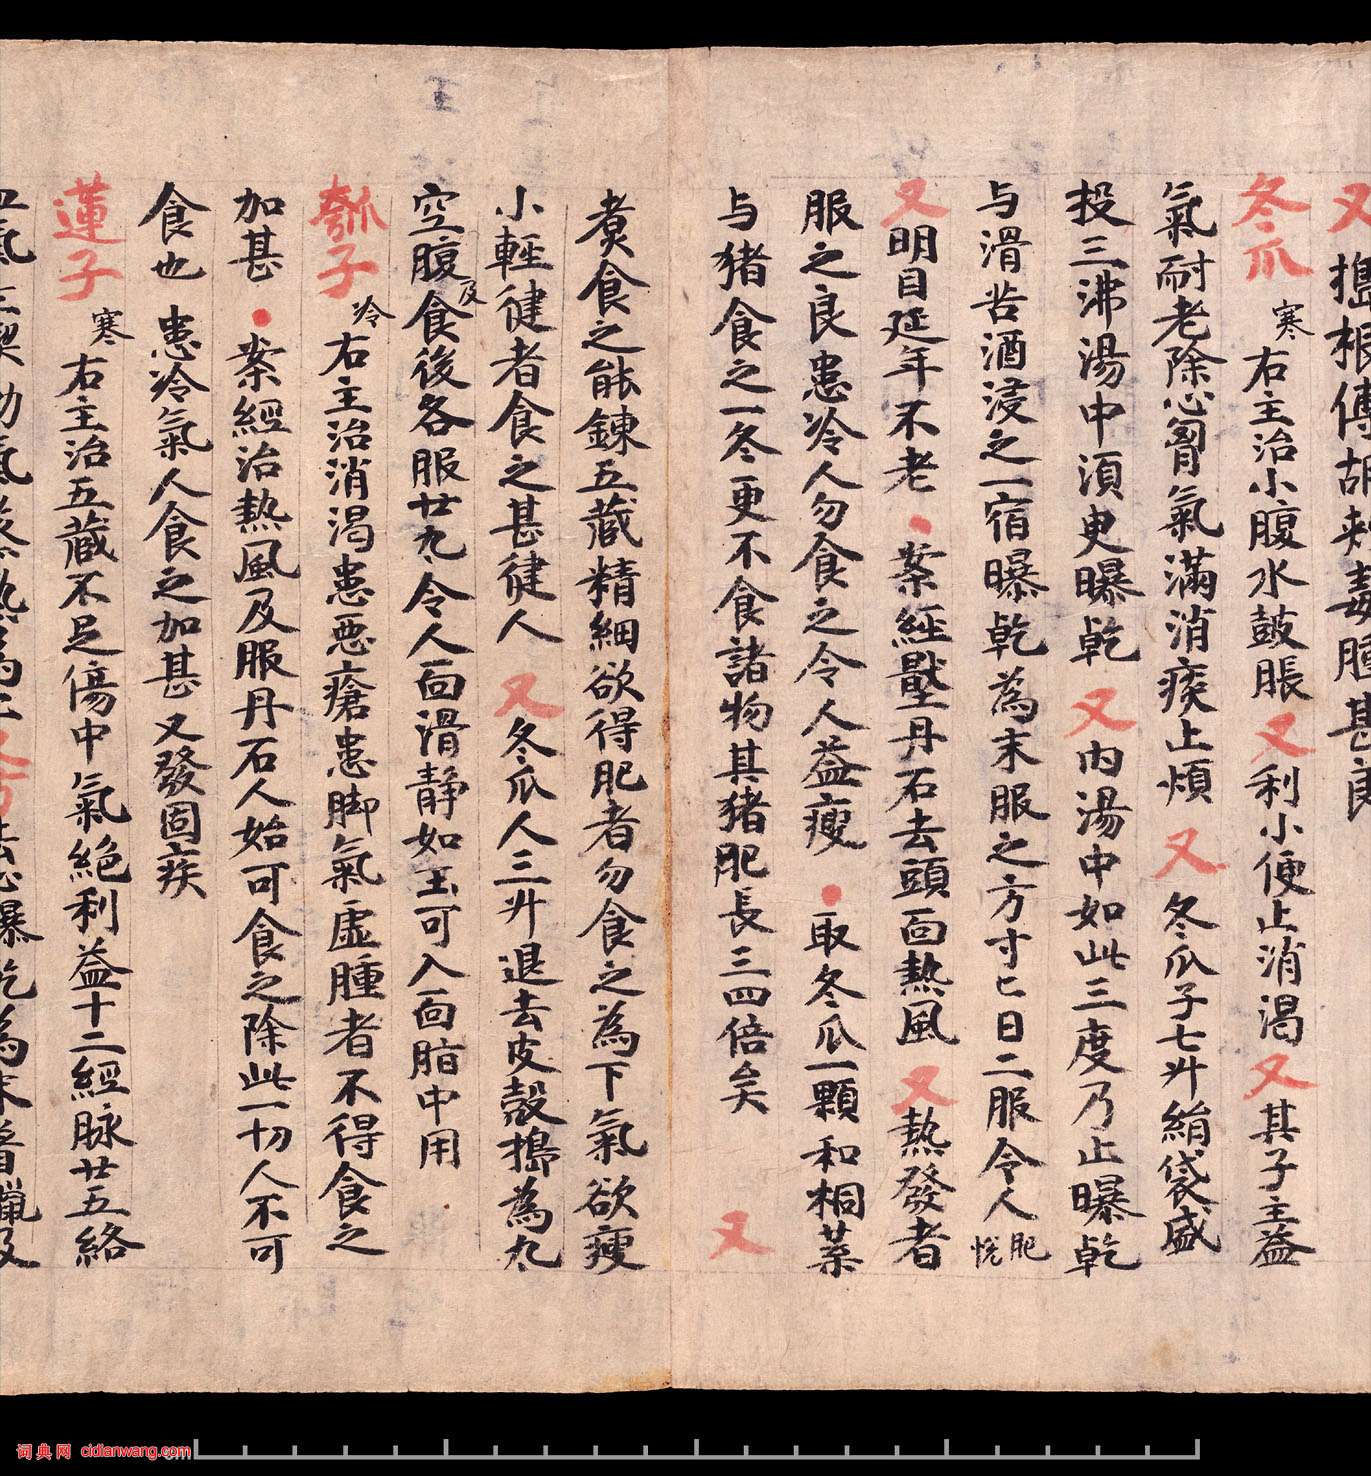 又 搗根傅胡刺毒腫甚良
冬瓜 寒 右主治小腹水鼓脹 又 利小便止消渴 又 其子主益
氣耐老除心胷氣滿消痰止煩 又 冬瓜子七升絹袋盛
投三沸湯中須臾曝乾 又 內湯中如此三度乃止曝乾
与滑苦酒浸之一宿曝乾為末服之方寸匕日二服令人肥悅
又 明目延年不老 案經壓丹石去頭面熱風 又 熱發者
服之良患冷人勿食之令人益瘦 取冬瓜一顆和桐葉
与猪食之一冬更不食諸物其猪肥長三四倍矣 又
煑食之能鍊五藏精細欲得肥者勿食之為下氣欲瘦
小輕健者食之甚健人 又 冬瓜人三升退去皮殼搗為丸
空腹及食後各服廿丸令人面滑静如玉可入面脂中用
瓠子 冷 右主治消渴患惡瘡患脚氣虛腫者不得食之
加甚 案經治熱風及服丹石人始可食之除此一切人不可
食也 患冷氣人食之加甚又發固疾
蓮子 寒 右主治五藏不足傷中氣絕利益十二經脉廿五絡
詞典网 cidianwang.com
cm